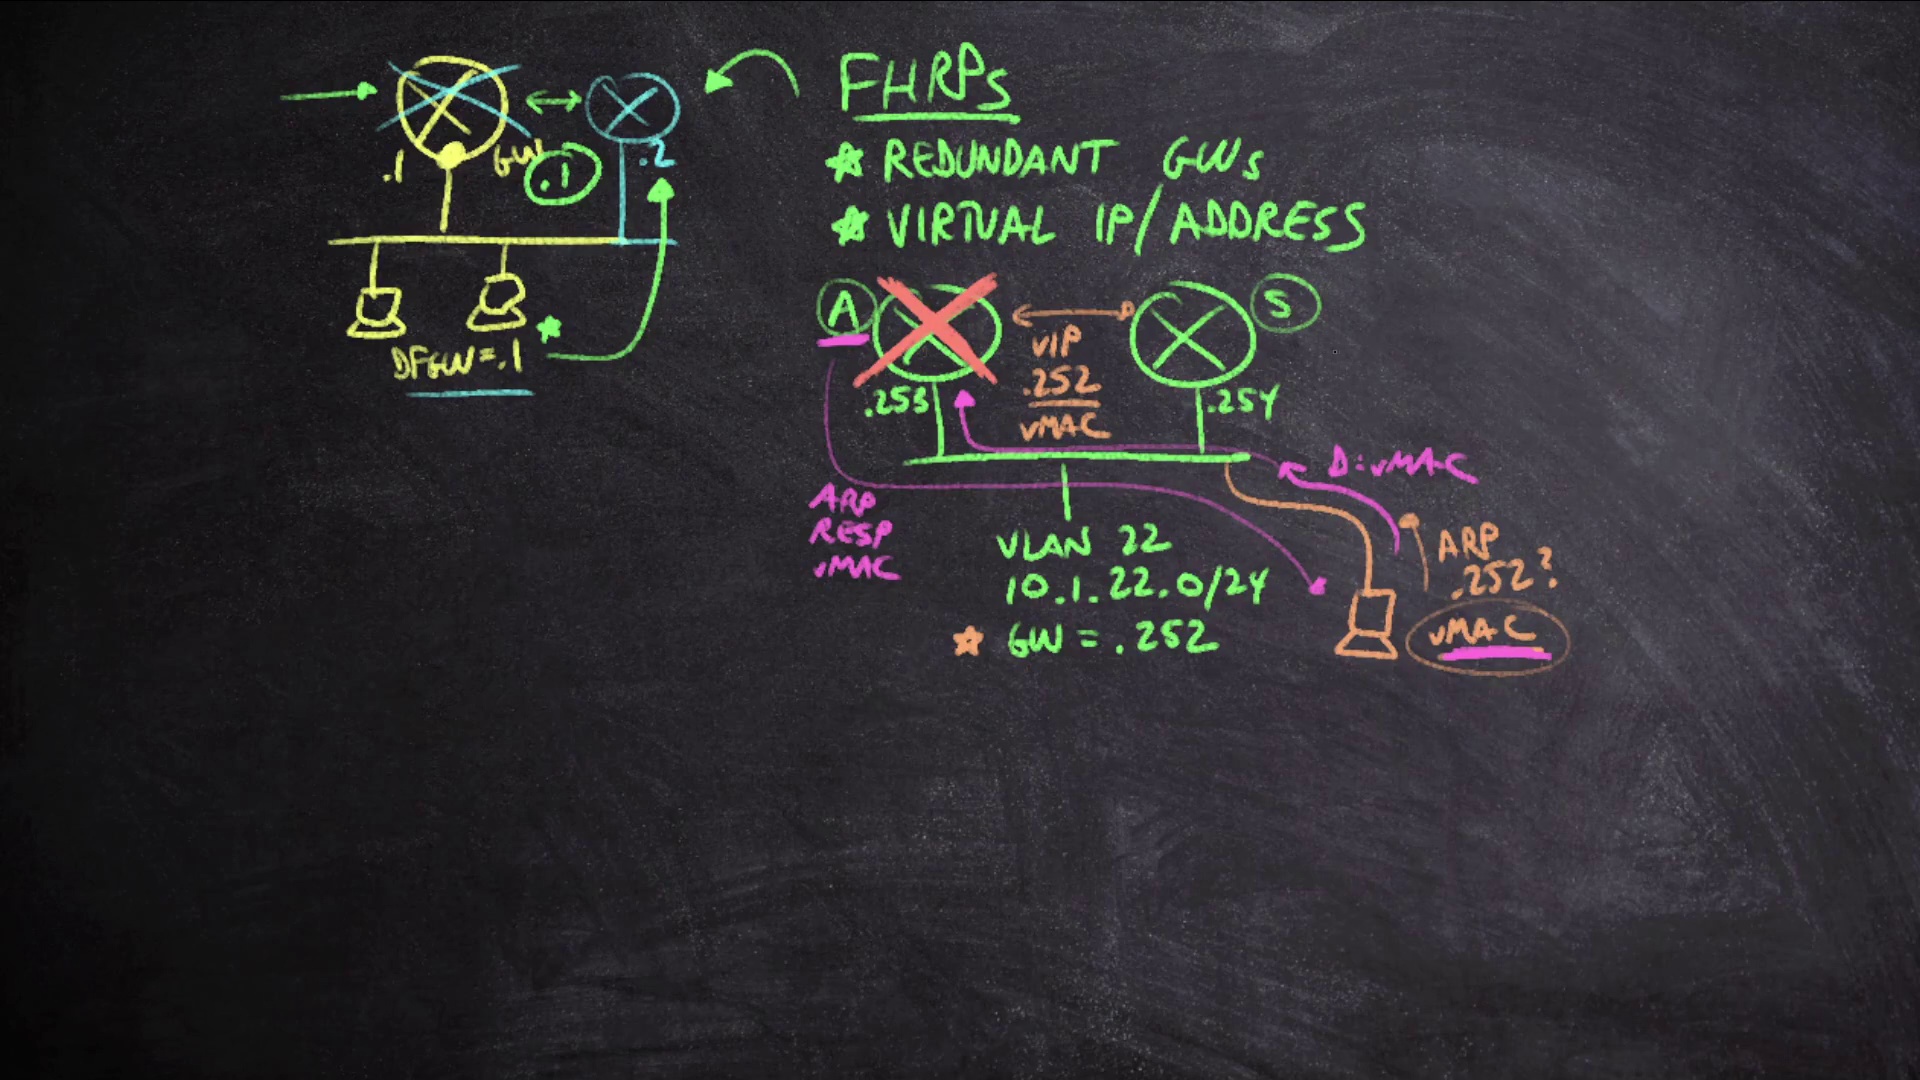 .1
GW
.1
.2
DFGW=.1
FHRPs
REDUNDANT GWs
VIRTUAL IP/ADDRESS
A
S
VIP
.252
vMAC
.253
.254
D:vMAC
ARP
RESP
vMAC
VLAN 22
10.1.22.0/24
GW = .252
ARP
.252?
vMAC